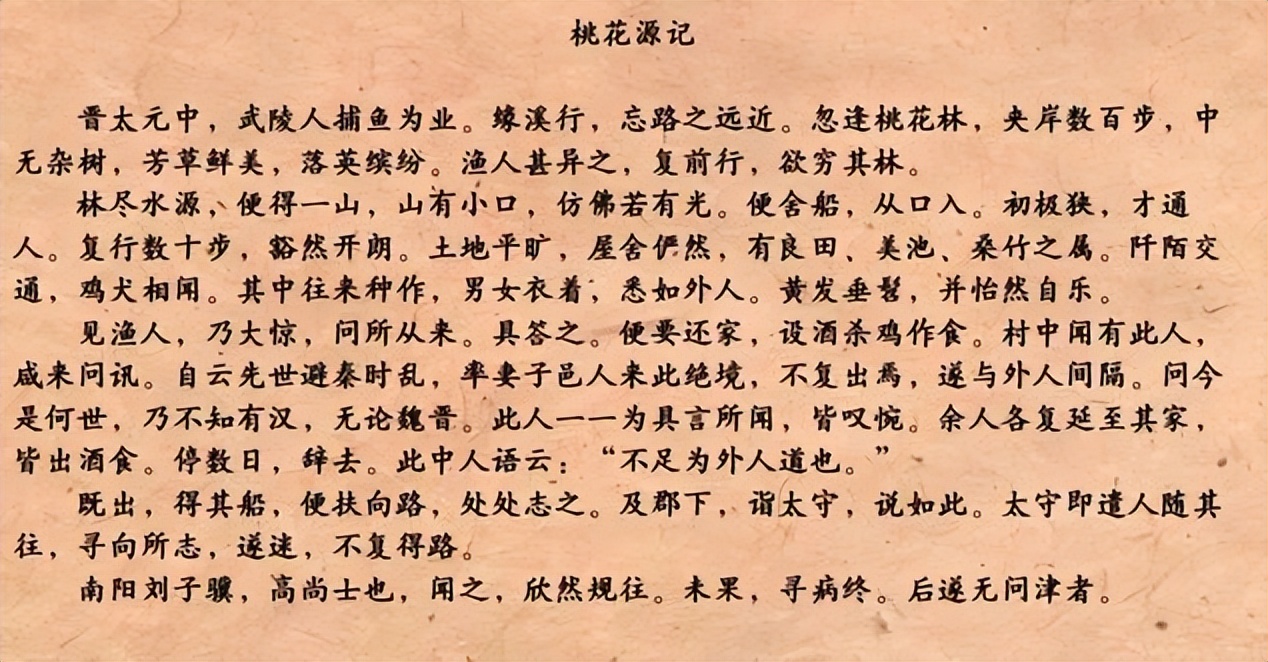 桃花源记
晋太元中，武陵人捕鱼为业。缘溪行，忘路之远近。忽逢桃花林，夹岸数百步，中
无杂树，芳草鲜美，落英缤纷。渔人甚异之，复前行，欲穷其林。
林尽水源，便得一山，山有小口，仿佛若有光。便舍船，从口入。初极狭，才通
人。复行数十步，豁然开朗。土地平旷，屋舍俨然，有良田、美池、桑竹之属。阡陌交
通，鸡犬相闻。其中往来种作，男女衣着，悉如外人。黄发垂髫，并怡然自乐。
见渔人，乃大惊，问所从来。具答之。便要还家，设酒杀鸡作食。村中闻有此人，
咸来问讯。自云先世避秦时乱，率妻子邑人来此绝境，不复出焉，遂与外人间隔。问今
是何世，乃不知有汉，无论魏晋。此人一一为具言所闻，皆叹惋。余人各复延至其家，
皆出酒食。停数日，辞去。此中人语云：“不足为外人道也。”
既出，得其船，便扶向路，处处志之。及郡下，诣太守，说如此。太守即遣人随其
往，寻向所志，遂迷，不复得路。
南阳刘子骥，高尚士也，闻之，欣然规往。未果，寻病终。后遂无问津者。